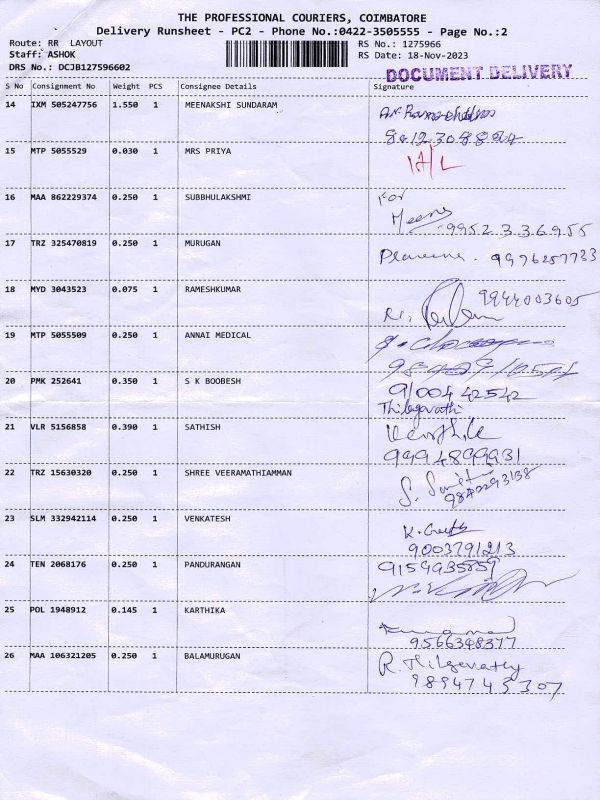 THE PROFESSIONAL COURIERS, COIMBATORE
Delivery Runsheet - PC2 - Phone No.:0422-3505555 - Page No.:2
Route: RR LAYOUT RS No.: 1275966
Staff: ASHOK RS Date: 18-Nov-2023
DRS No.: DCJB127596602
DOCUMENT DELIVERY
S No Consignment No Weight PCS Consignee Details Signature
14 IXM 505247756 1.550 1 MEENAKSHI SUNDARAM
15 MTP 5055529 0.030 1 MRS PRIYA
16 MAA 862229374 0.250 1 SUBBHULAKSHMI For
Meena
9952336955
17 TRZ 325470819 0.250 1 MURUGAN
9976257733
18 MYD 3043523 0.075 1 RAMESHKUMAR 9944003605
19 MTP 5055509 0.250 1 ANNAI MEDICAL
20 PMK 252641 0.350 1 S K BOOBESH 9100442542
Thilagavathi
21 VLR 5156858 0.390 1 SATHISH
9994899931
22 TRZ 15630320 0.250 1 SHREE VEERAMATHIAMMAN
9842293138
23 SLM 332942114 0.250 1 VENKATESH
9003791213
24 TEN 2068176 0.250 1 PANDURANGAN 9159935859
25 POL 1948912 0.145 1 KARTHIKA
9566348377
26 MAA 106321205 0.250 1 BALAMURUGAN R. Thilgevathy
9894743307